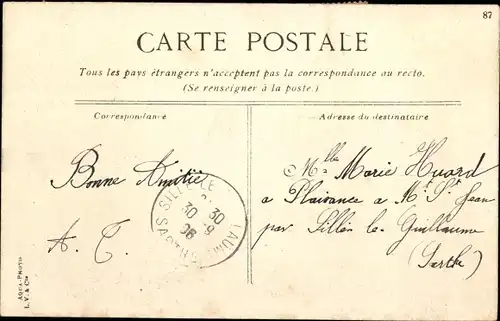 87
CARTE POSTALE
Tous les pays étrangers n'acceptent pas la correspondance au recto.
(Se renseigner à la poste.)
Correspondance
Adresse du destinataire
Bonne Amitié
A. T.
SILLÉ-LE
30
30 9
06
SARTHE
Mlle Marie Huard
a Plaisance a Mt St Jean
par Sillé le Guillaume
(Sarthe)
AQUA-PHOTO
L. V. & Cie